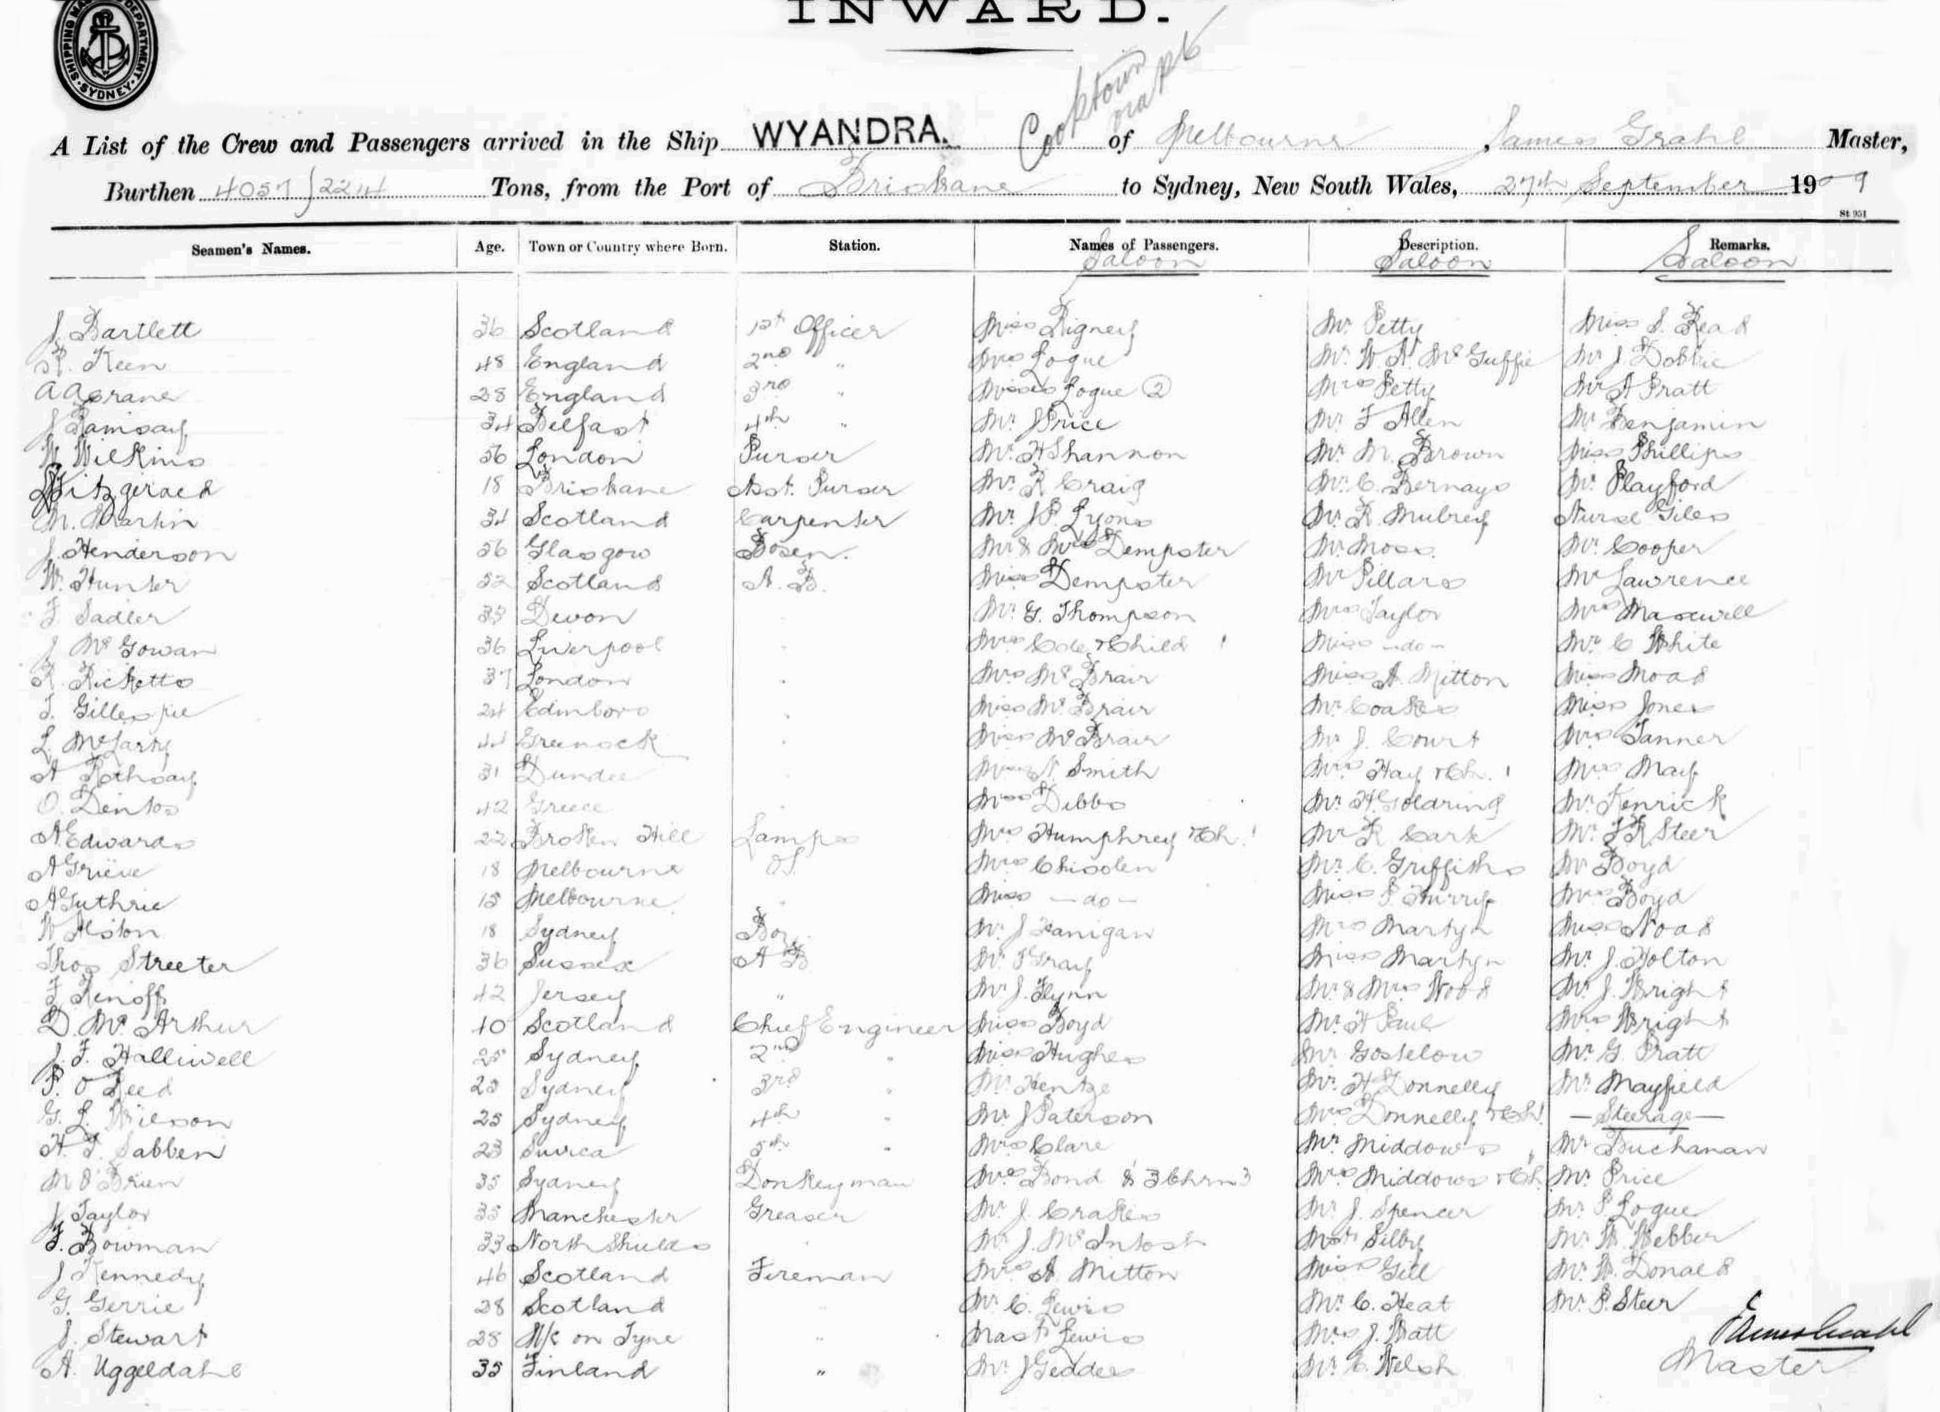 INWARD.
SHIPPING
DEPARTMENT
SYDNEY
Cooktown
A List of the Crew and Passengers arrived in the Ship WYANDRA. of Melbourne, James Grahl Master,
Burthen 4057/2214 Tons, from the Port of Brisbane to Sydney, New South Wales, 27th September 1909
St 951
Seamen's Names. Age. Town or Country where Born. Station. Names of Passengers. Description. Remarks.
Saloon Saloon Saloon
J. Bartlett 36 Scotland 1st Officer Miss Rigney Mr Petty Miss S. Read
R. Keen 48 England 2nd " Mrs Logue Mr W. A. McGuffie Mr J Dobbie
A A Crane 28 England 3rd " Misses Logue (2) Mrs Petty Mr A Pratt
J Ramsay 34 Belfast 4th " Mr J Price Mr F Allen Mr Benjamin
W Wilkins 56 London Purser Mr H Shannon Mr M. Brown Miss Phillips
Fitzgerald 18 Brisbane Asst. Purser Mr R Craig Mr C. Bernays Mr Playford
M. Martin 34 Scotland Carpenter Mr J P Lyons Mr R. Mulrey Nurse Giles
J. Henderson 56 Glasgow Bosen. Mr & Mrs Dempster Mr Moss. Mr Cooper
W. Hunter 52 Scotland A. B. Miss Dempster Mr Pillars Mr Lawrence
F Sadler 35 Devon Mr G. Thompson Mrs Taylor Mrs Maxwell
J McGowan 36 Liverpool Mrs Cole & Child 1 Miss -do- Mr C White
R. Ricketts 37 London Mrs McBrair Miss A. Mitton Miss Moad
T. Gillespie 24 Edinboro Miss McBrair Mr Coakes Miss Jones
L. McLarty 44 Greenock Miss McBrair Mr J. Court Mrs Tanner
A Rothsay 31 Dundee N Smith Mrs Hay & Ch. 1 Miss May
O. Dentos 42 Greece Miss Dibbs Mr H. Goldring Mr Kenrick
A Edwards 22 Broken Hill Lamps Mrs Humphrey & Ch. 1 Mr R Cark Mr F R Steer
A Grieve 18 Melbourne OS. Mrs Chisolen Mr C. Griffiths Mr Boyd
A Guthrie 18 Melbourne. " Miss -do- Miss P. Thirry Mrs Boyd
W Alston 18 Sydney Boy. Mr J Hanigan Mrs Martyn Miss Noad
Thos Streeter 36 Sussex A B Mr T Gray Miss Martyn Mr J. Holton
F Renoff 42 Jersey " Mr J. Flynn Mr & Mrs Wood Mr J. Wright
D. McArthur 40 Scotland Chief Engineer Miss Boyd Mr H Paul Mrs Wright
J. F. Halliwell 25 Sydney 2nd " Miss Hughes Mr Goselow Mr G. Pratt
P. O Reed 25 Sydney 3rd " Mr Hentze Mr H Donnelly Mr Mayfield
G. L. Wilson 25 Sydney 4th " Mr J Paterson Mrs Donnelly & Ch. 1 -Steerage-
H. T. Sabben 23 5th " Mrs Clare Mr Middows Mr Buchanan
M O'Brien 35 Sydney Donkeyman Mrs Bond & 3 Chrn 3 Mrs Middows & Ch. Mr Price
J Taylor 35 Manchester Greaser Mr J. Crakes Mr J. Spencer Mr P. Logue
F. Bowman 33 North Shields " Mr J. McIntosh Silby Mr W. Webber
J Kennedy 46 Scotland Fireman Mrs A. Mitton Miss Gill Mr W. Donald
G. Gerrie 28 Scotland " Mr C. Lewis Mr C. Heat Mr P. Steer
J. Stewart 28 N/c on Tyne " Mast Lewis Mrs J. Watt James Grahl
A. Uggeldahl 35 Finland " Mr J Geddes Mr C. Welsh Master